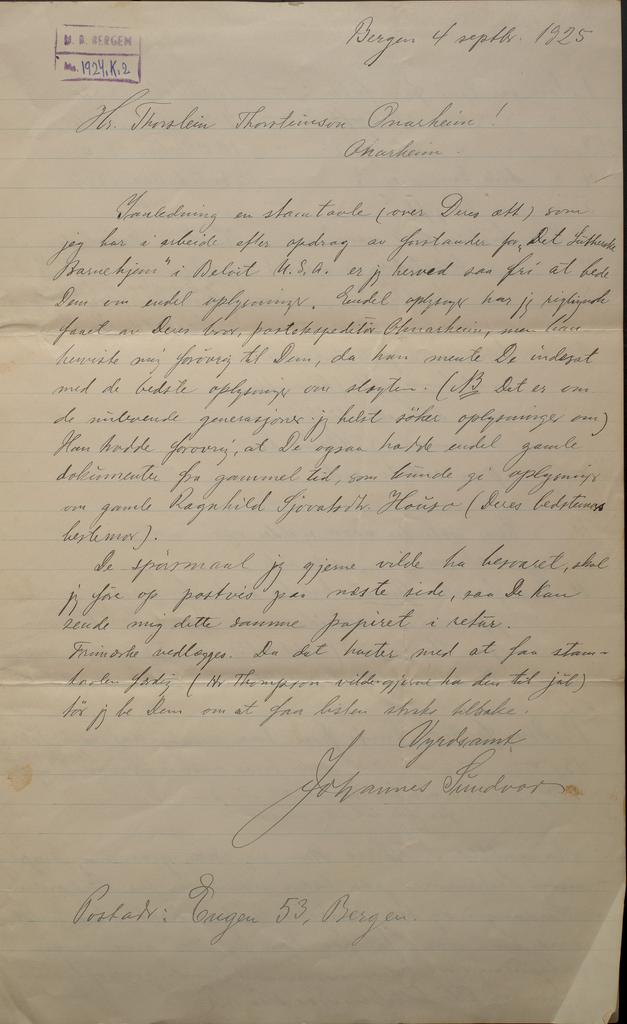 U. B. BERGEN
Ms. 1924.K.2
Bergen 4 septbr. 1925
Hr. Thorstein Thorsteinson Onarheim!
Onarheim.
I anledning en stamtavle (over Deres ætt) som
jeg har i arbeide efter opdrag av forstander for "Det Lutherske
Barnehjem" i Beloit U.S.A. er jeg herved saa fri at bede
Dem om endel oplysninger. Endel oplysninger har jeg rigtignok
faaet av Deres bror, postekspeditör Onarheim, men han
henviste mig forövrig til Dem, da han mente De indesat
med de bedste oplysninger om slegten. (NB Det er om
de nulevende generasjoner jeg helst söker oplysninger om)
Han trodde forövrig, at De ogsaa hadde endel gamle
dokumenter fra gammel tid, som kunde gi oplysninger
om gamle Ragnhild Sjovatsdtr. Houso (Deres bedstemors
bestemor).
De spörsmaal jeg gjerne vilde ha besvaret, skal
jeg före op postvis paa næste side, saa De kan
sende mig dette samme papiret i retur.
Frimærke vedlægges. Da det haster med at faa stam-
tavlen færdig (Mr Thompson vilde gjerne ha den til jul)
tör jeg be Dem om at faa listen straks tilbake.
Vyrdsamt
Johannes Sundvor
Postadr: Engen 53, Bergen.